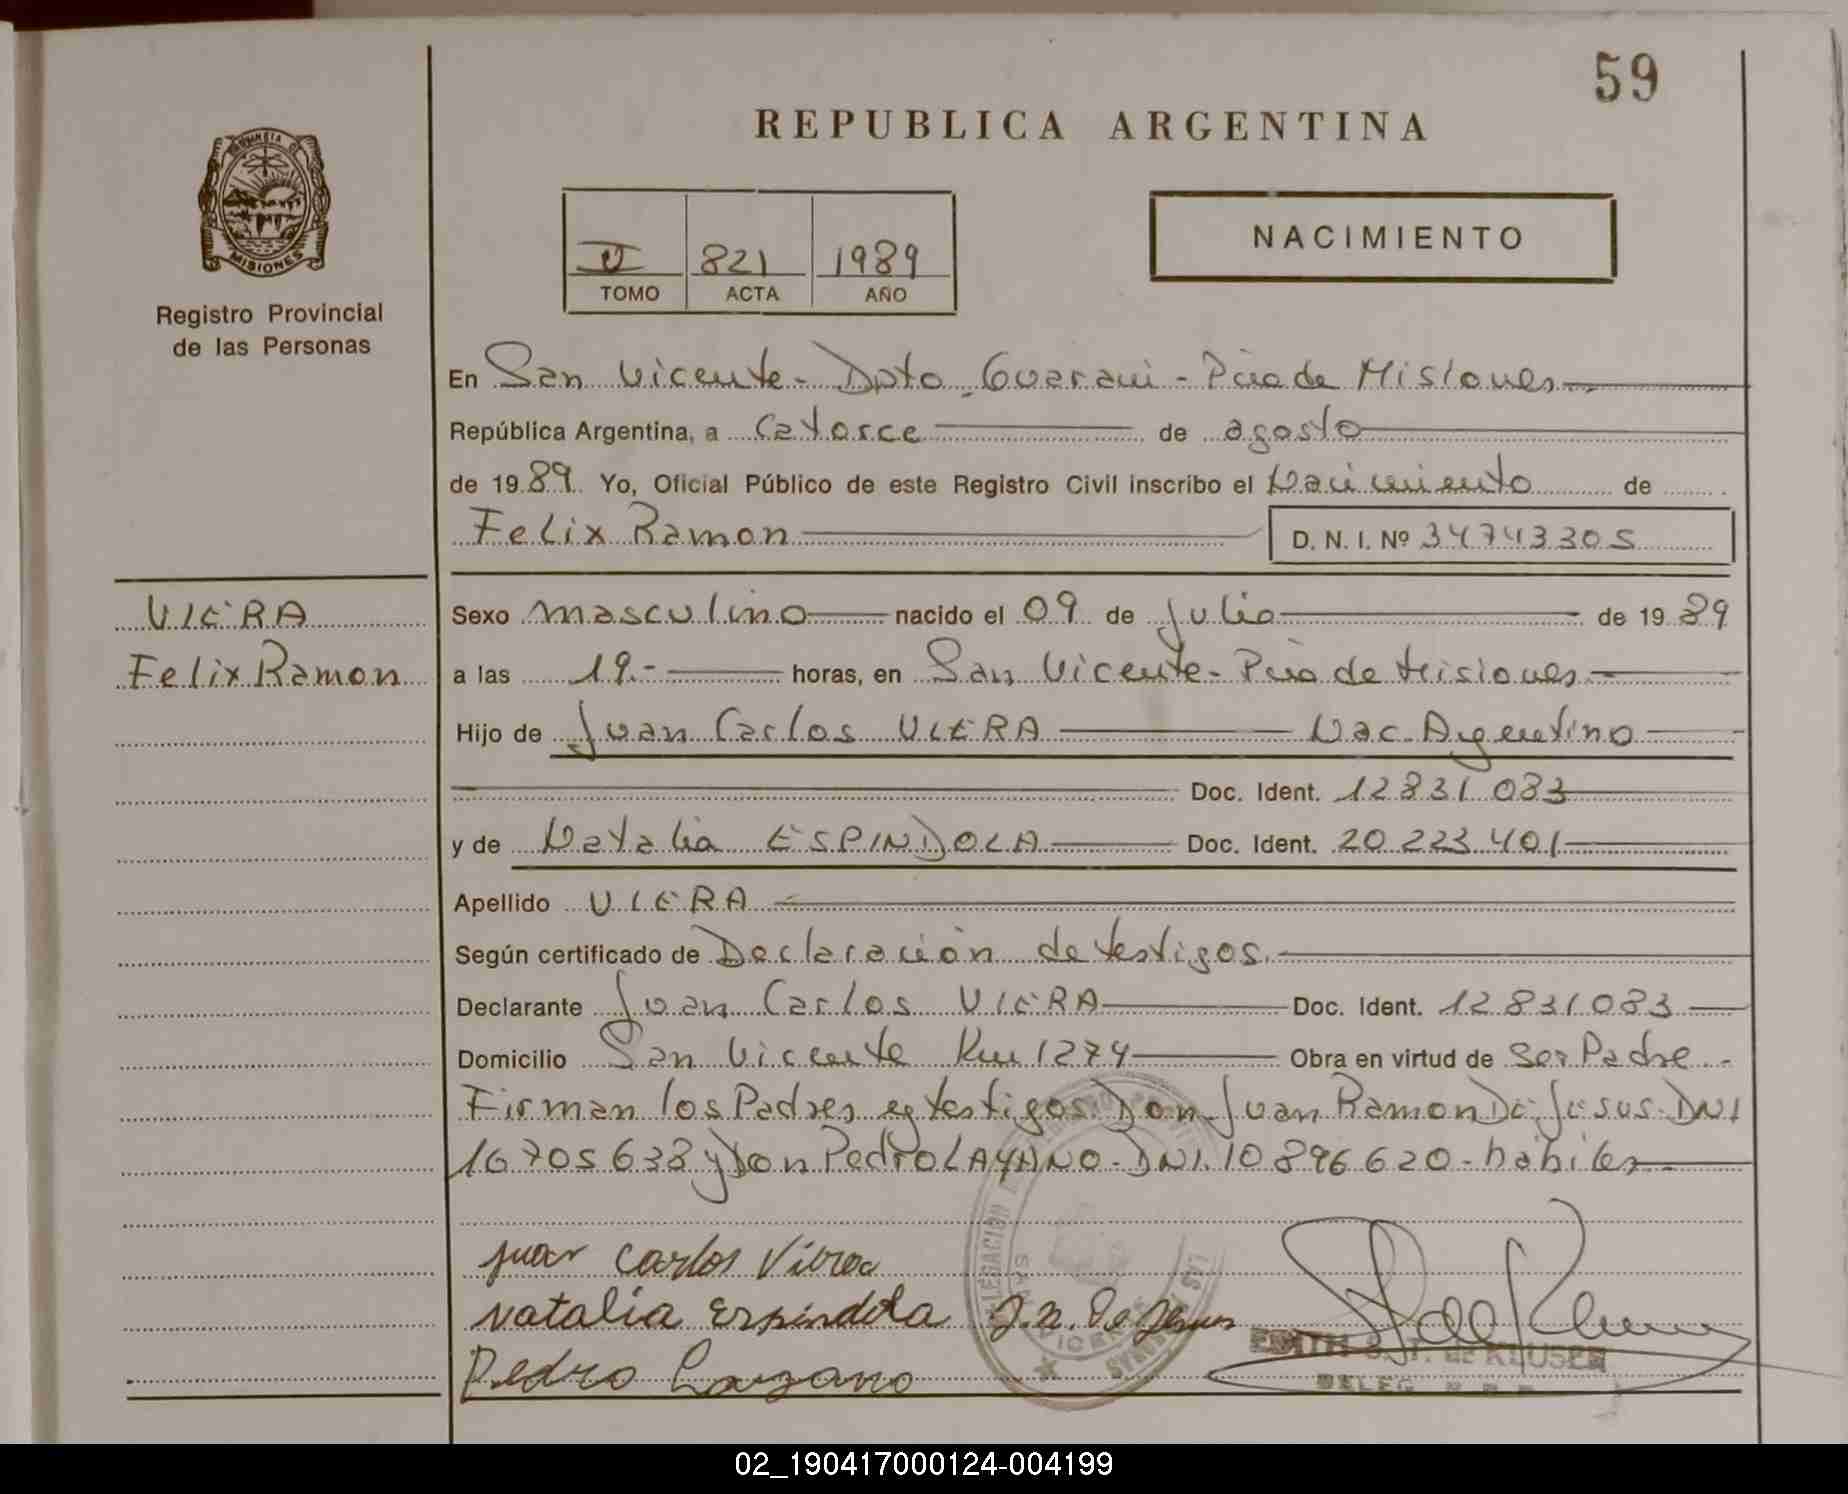 59
REPUBLICA ARGENTINA
PROVINCIA DE
MISIONES
Registro Provincial
de las Personas
821 1989
TOMO ACTA AÑO
NACIMIENTO
En San Vicente - Dpto. Guarani - Pcia de Misiones
República Argentina, a catorce de agosto
de 1989. Yo, Oficial Público de este Registro Civil inscribo el Nacimiento de
Felix Ramon D. N. I. Nº 34743305
VIERA
Felix Ramon
Sexo masculino nacido el 09 de Julio de 1989
a las 19.- horas, en San Vicente - Pcia de Misiones
Hijo de Juan Carlos VIERA Nac. Argentino
Doc. Ident. 12831083
y de Natalia ESPINDOLA Doc. Ident. 20.223.401
Apellido VIERA
Según certificado de Declaración de testigos.
Declarante Juan Carlos VIERA Doc. Ident. 12831083
Domicilio San Vicente Km 1274 Obra en virtud de Ser Padre.-
Firman los Padres y testigos. Don Juan Ramon De Jesus. DNI
16705638 y Don Pedro LAYANO. DNI. 10896620 - hábiles
Juan Carlos Viera
Natalia Espindola J.R. De Jesus
Pedro Lozano
EDITH S.T. de KLUSER
DELEG. R. P. P.
02_190417000124-004199